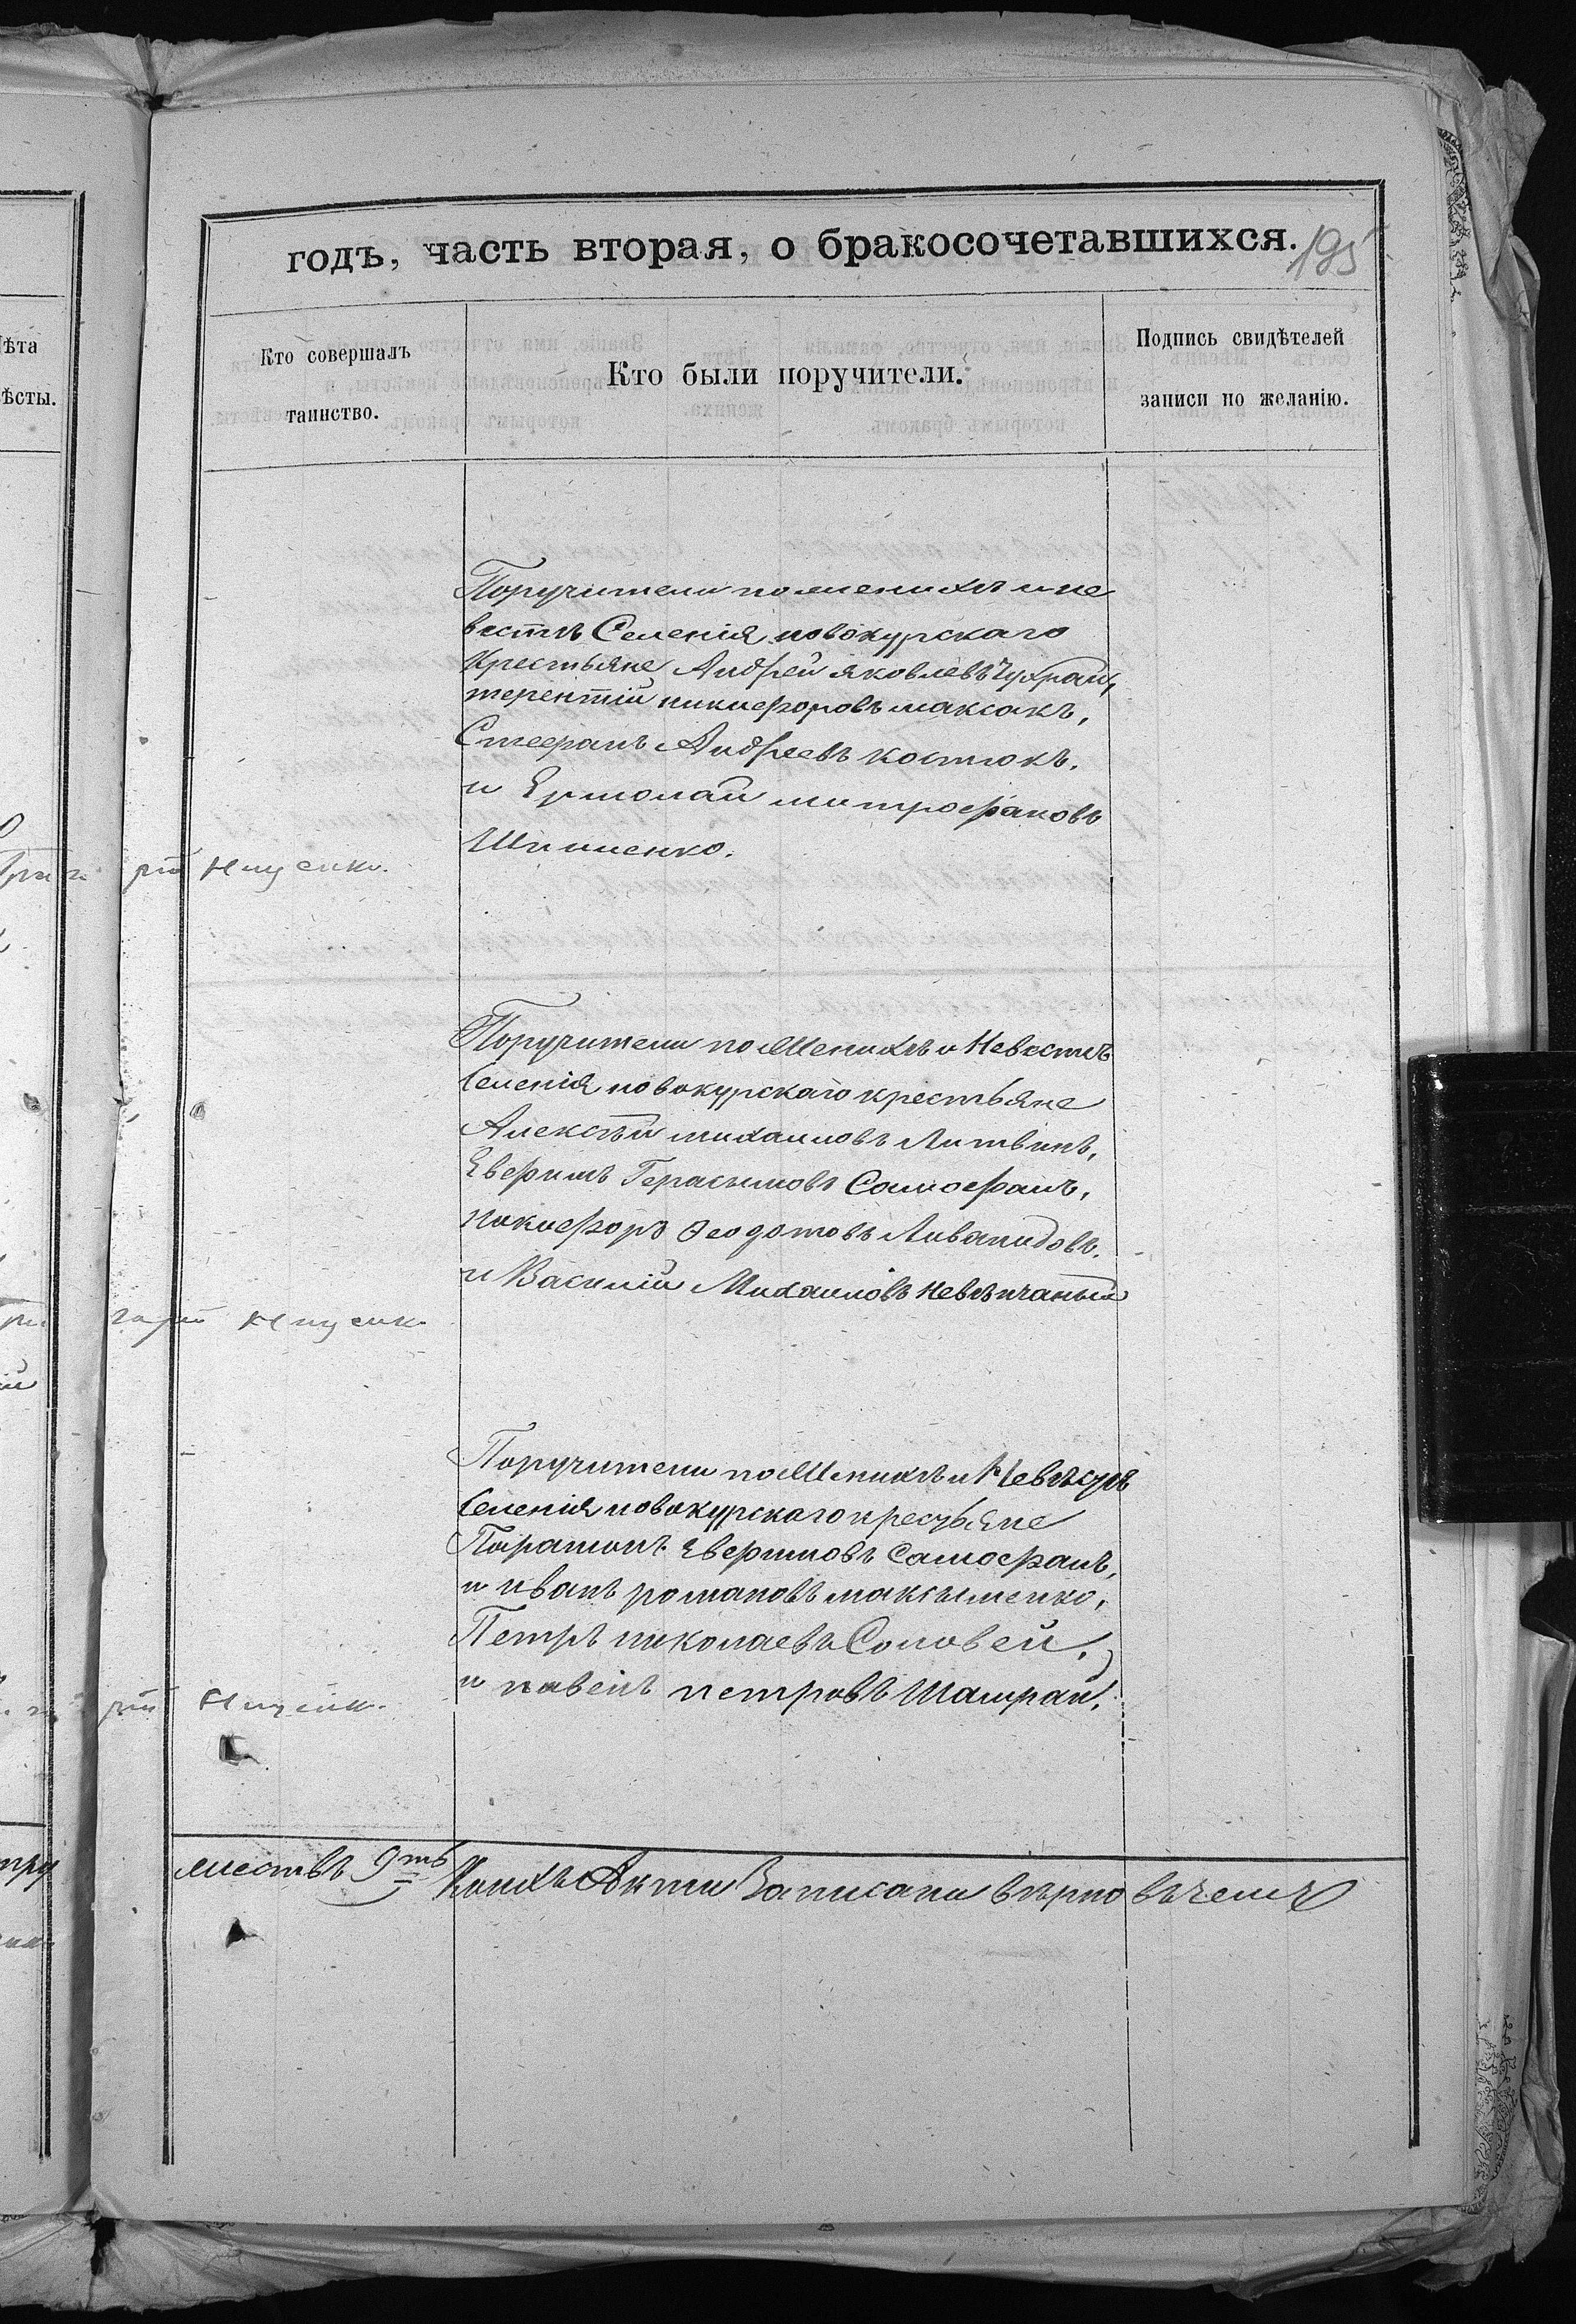 годъ, часть вторая, о бракосочетавшихся. 195
Кто совершалъ
таинство.
Кто были поручители.
Подпись свидѣтелей
записи по желанію.
ѣта
ѣсты.
Поручители по женихѣ и не
вестѣ Селенія новокурскаго
Крестьяне Андрей яковлевъ Чухрай,
терентій никифоровъ максакъ,
Стефанъ Андреевъ костюкъ.
и Ермолай митрофановъ
Поручители по Женихѣ и Невестѣ
Селенія новокурскаго крестьяне
Алексѣй михаиловъ Литвинъ,
Евфимъ Герасимовъ Самофалъ,
Никифоръ Феодотовъ Ливанидовъ.
и Василій Михаиловъ Невѣнчаный
Поручители по Женихѣ и Невѣстѣ
Селенія новокурскаго крестьяне
Парамонъ Евфимовъ Самофалъ,
и иванъ романовъ максыменко,
Петръ николаевъ Соловей,
и павелъ петровъ Шамрай.
листвъ 9ть
Коихъ Акты Записаны вѣрно въ чемъ